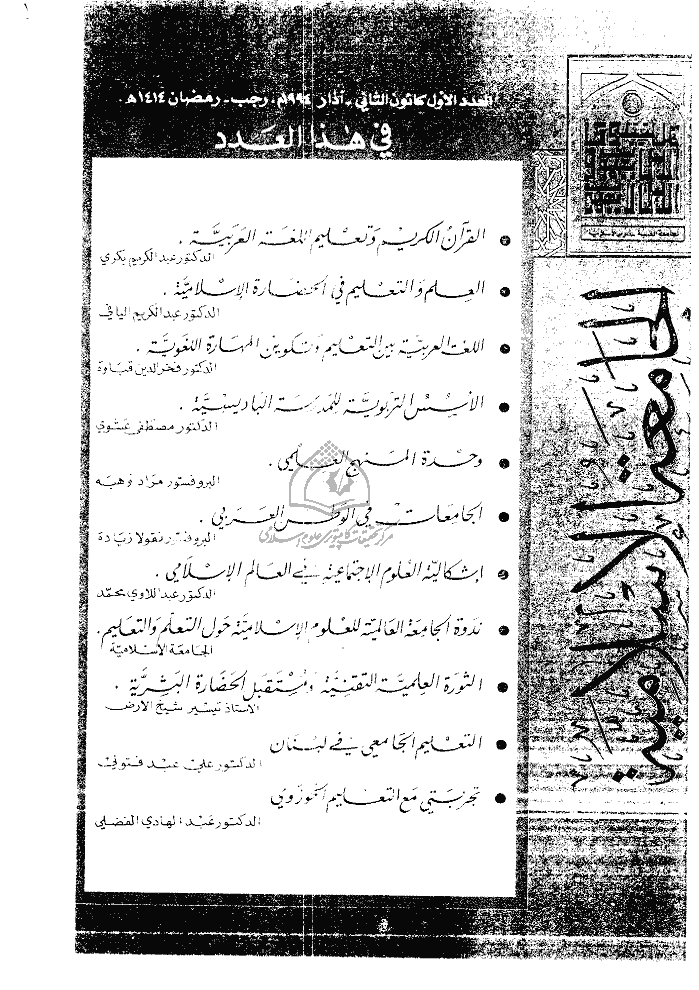 ١
العدد الأول كانون الثاني - آذار ١٩٩٤م. رجب - رمضان ١٤١٤هـ.
في هذا العدد
الجامعة الإسلامية
• القرآن الكريم وتعليم اللغة العربية .
الدكتور عبد الكريم بكري
• العلم والتعليم في الحضارة الإسلامية .
الدكتور عبد الكريم اليافي
• اللغة العربية بين التعليم وتكوين المهارة اللغوية .
الدكتور فخر الدين قباوة
• الأسس التربوية للمدرسة الباديسية .
الدكتور مصطفى عشوي
• وحدة المنهج العلمي .
البروفسور مراد وهبه
• الجامعات في الوطن العربي .
البروفسور نقولا زيادة
مركز تحقيقات كامپيوتری علوم اسلامی
• إشكالية العلوم الاجتماعية في العالم الإسلامي .
الدكتور عبد اللاوي محمد
• ندوة الجامعة العالمية للعلوم الإسلامية حول التعلم والتعليم .
الجامعة الإسلامية
• الثورة العلمية التقنية ومستقبل الحضارة البشرية .
الاستاذ تيسير شيخ الأرض
• التعليم الجامعي في لبنان
الدكتور علي عبد فتوني
• تجربتي مع التعليم الحوزوي
الدكتور عبد الهادي الفضلي